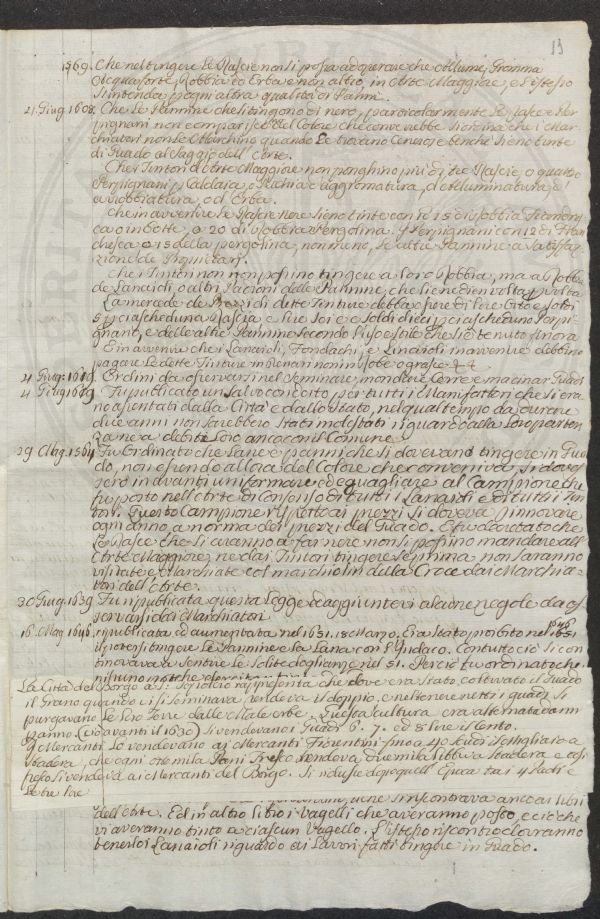 13
1569. Che nel tingere Le Rascie non si possa adoperare che Allume, Gromma
Acqua forte, Robbia ed Erba e non altro, in Arte Maggiore, e l'istesso
s'intenda p ogni altra qualità di Panni.
21. Giug. 1608. Che Le Pannine che si tingono di nero, particolarmente Le Rasce e Per
pignani non compariscono del Colore che converrebbe si ordina che i Mar
chiatori non Le Marchino quando Le trovano Cenerose benche sieno tinte
di Guado al Saggio dell'Arte.
Che i Tintori d'Arte Maggiore non ponghino più di tre Rascie, o quattro
Perpignani p Caldaia, o Pechia e aggromatura, d'alluminatura, e
arrobbiatura, od Erba.
Che in avvenire Le Rascie Nere sieno tinte con 18 di Robbia Fiandre
ca o in botte, o 20 di Robbia Pergolina. I Perpignani con 12 di Fian
dresca o 15 della pergolina, non meno, e le altre Pannine a satisfa
zione de Proprietari.
Che i Tintori non possino tingere a loro Robbia, ma a Robbia
de Lanaioli, o altri Padroni delle Pannine, che sieno di volta p volta
La mercede de Prezzi di dette Tinture debba essere di lire Otto e soldi
5 p ciascheduna Rascia e Lire sei e soldi dieci p ciascheduno Perpi
gnano, e delle altre Pannine secondo l'uso e stile che si è tenuto sinora
E in avvenire che i Lanaioli, Fondachi, e Linaioli in avvenire debbino
pagare Le dette Tinture in denari non in robe o grasce &. &.
4. Giug: 1619. Ordini da osservarsi nel seminare, mondare Corre e macinar Guadi
4 Giug 1619 Fu publicato un salvo condotto per tutti i Manifattori che si era
no assentati dalla Città e dallo Stato, nel qual tempo da durare
due anni non sarebbero stati molestati riguardo alla loro parten
za nè a debiti Loro anco con il Comune.
29 Mag. 1564 Fu Ordinato che Lane e panni che si dovevano tingere in Gua
do, non essendo allora del Colore che conveniva, si doves
sero in avanti uniformare ed eguagliare al Campione che
fu posto nell'Arte di Consenso di tutti i Lanaioli e di tutti i Tin
tori. Questo Campione rispetto ai prezzi si doveva rinnovare
ogni anno, a norma dei prezzi del Guado. E fu decretato che
Le Rasce che si avranno a far nere non si possino mandare all'
Arte Maggiore, ne dai Tintori tingere se prima non saranno
visitate e Marchiate col marchio In della Croce dai Marchia
tori dell'Arte.
30 Giug. 1639 Fu ripublicata questa Legge ed aggiuntevi alcune regole da os
servarsi dai Marchiatori
18. Mag 1646. ripublicata ed aumentata nel 1651. 18 Marzo. Era stato proibito nel 1646
il potersi tingere Le Pannine e la Lana con l'Indaco. Contuttociò si con
tinovava a sentire Le solite doglianze nel 51. Perciò fu ordinato che
La Città del Borgo a S: Sepolcro rappresenta che dove era stato coltivato il Guado
il Grano quando vi si seminava rendeva il doppio, e nel tenere netti i Guadi si
purgavano Le Loro Terre dalle Male erbe. Questa cultura era alternata d'anni
p anno. (ciò avanti il 1630) si vendevano i Guadi 6. 7. ed 8 lire il Cento.
I Mercanti Lo vendevano ai Mercanti Fiorentini fino a 40 scudi Il Migliaio a
stadera, che ogni otto mila Pani Fresco rendeva due mila libbre a stadera e così
fresco si vendeva ai Mercanti del Borgo. Si ridusse dopo quell'Epoca tra i 4 scudi e
Le tre lire
dell'Arte. Ed in altro libro i Vagelli che averanno posto, e ciò che
vi averanno tinto a ciascun Vagello. L'istesso riscontro dovranno
tenerlo i Lanaioli riguardo ai Lavori fatti tingere in Guado.